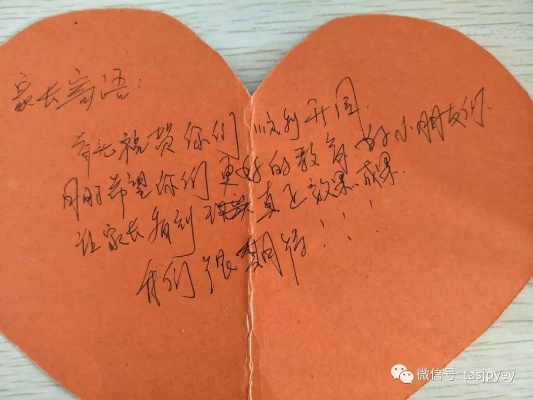 家长寄语：
首先祝贺你们顺利开园.
同时希望你们更好的教育好小朋友们.
让家长看到真正效果.成果.
我们很期待！！！
微信号: tasjpyey